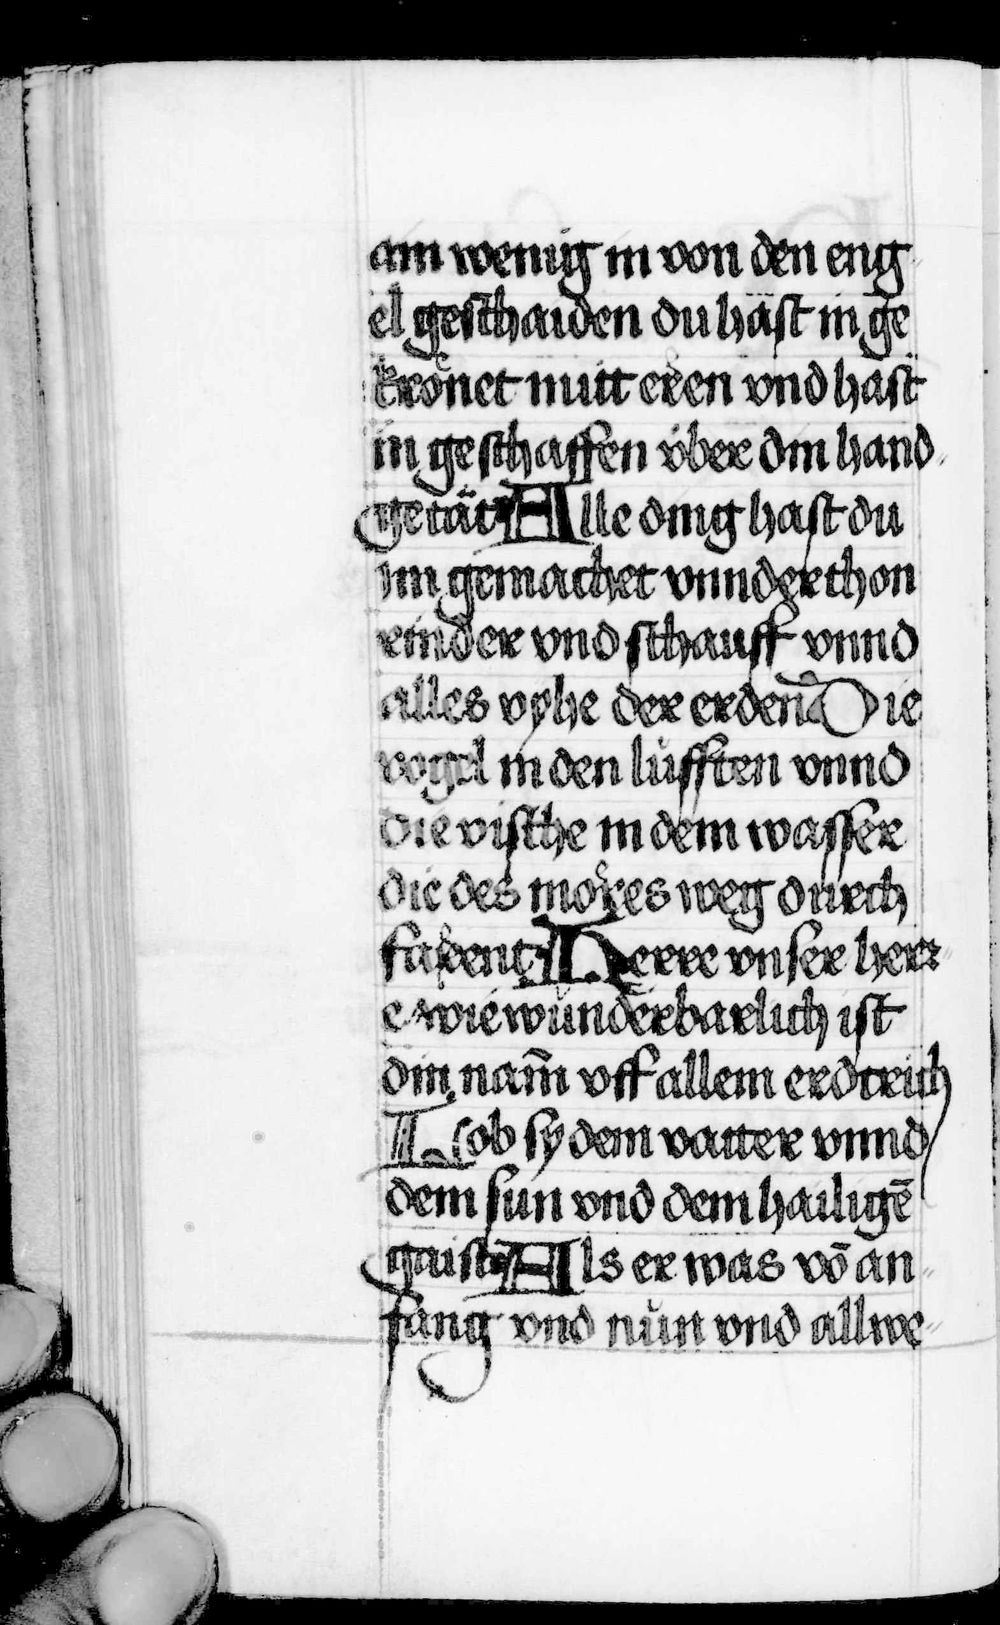 ain wenig in von den eng
el geschaiden du häst in ge
krönet mitt eren vnd hast
in geschaffen v̈ber din hand
getät Alle ding hast du
im gemachet vnnderthon
rinder vnd schauff vnnd
alles vyhe der erden Die
vogel in den lüfften vnnd
die vische in dem wasser
die des mores weg durch
farent Herre vnser herr
e wie wunderbarlich ist
din nam̄ vff allem erdtrich
Lob sy dem vatter vnnd
dem sun vnd dem hailigē
gaist Als er was vō an
fang vnd nun vnd allwe